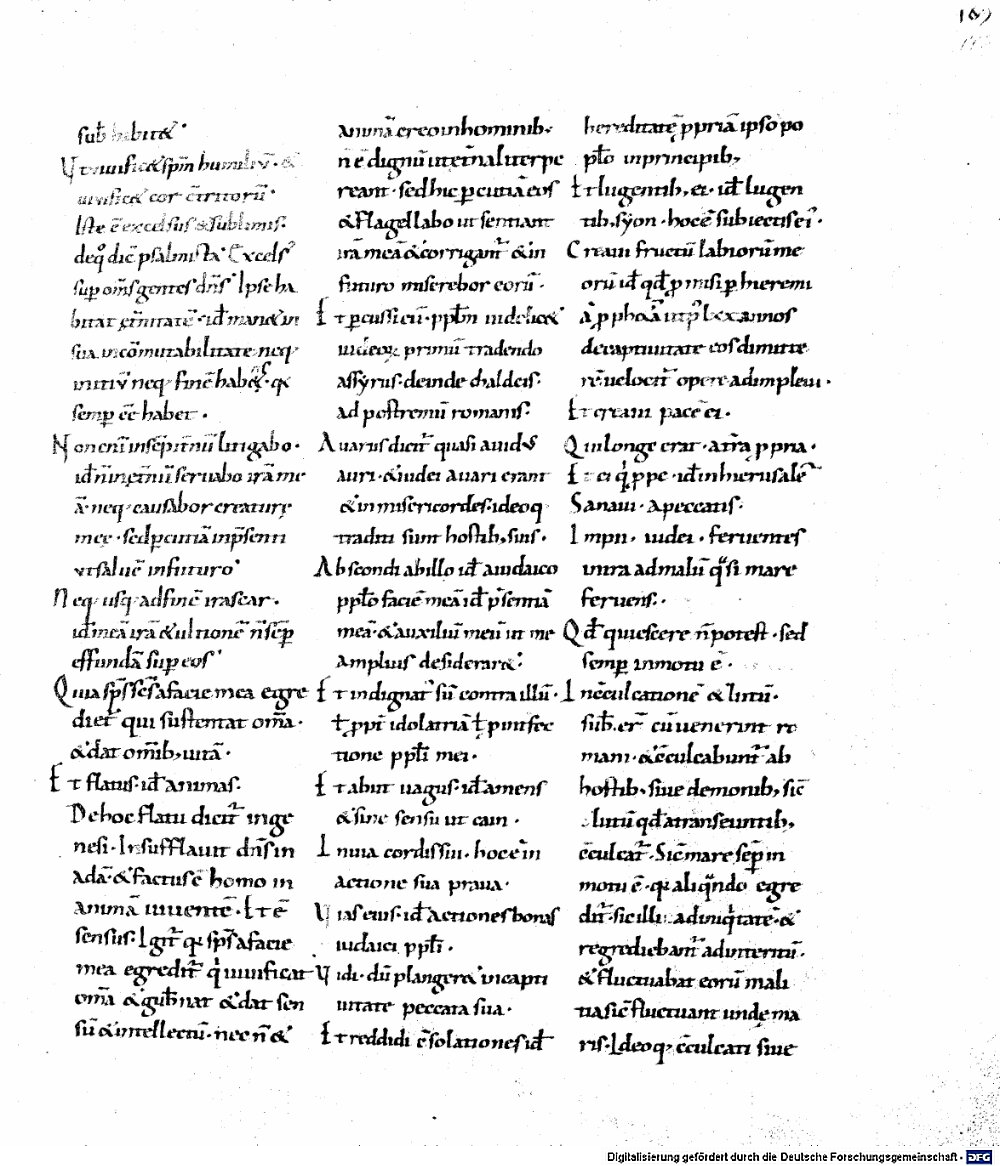 167
sub̄ habit&
Vt uiuific& sp̄m humiliū · &
uiuific& cor c̄tritorū ·
Iste ē excelsus & sublimis·
deq̣ dic̄ psalmista · Excels᾿
sup om̄s gentes dn̄s᾿ Ipse ha
bitat &̨nitatē · id̄ man& in
sua incōmutabilitate neq·
initiū neq· finē habēs· q·
semp eē habet ·
Non eni᷆ insēpit̄nū litigabo ·
id̄ n̄ in &̨nū seruabo irā me
ā· neq· causabor creaturę
meę · sed pcutiā inp̄senti
ut saluē infuturo᾿
Neq· usq· adfinē irascar ·
id̄ meā irā & ultionē n̄ sēp
effundā sup eos᾿
Quia sp̄s ēs afacie mea egre
diet᷆ qui sustentat om̄a ·
& dat om̄ib, uitā ·
Et flatus· id̄ animas·
Dehoc flatu dicit᷆ inge
nesi· Insufflauit dn̄s in
adā· & factus ē homo in
animā uiuentē · It ē
sensus· Igit᷆ q· sp̄s afacie
mea egredit᷆ q̇ uiuificat
om̄a & gub̄nat & dat sen
sū & intellectū· nec n̄ &
animā creo inhominib·
n̄ ē dignū ut et᷆nalit᷆ pe
reant · sed hic pcutiā eos
& flagellabo ut sentiant
irā meā & corrigant᷆ & in
futuro miserebor eorū ·
Et pcussi eū · ppl̄m uidelic&
iudeorꝝ primū tradendo
assyrus· deinde chaldeis·
ad postremū romanis·
Auarus dicit᷆ quasi auid᾿
auri · & iudei auari erant
& inmisericordes· ideoq·
traditi sunt hostib, suis·
Abscondi abillo id̄ aiudaico
ppl̄o faciē meā id̄ p̄sentiā
meā · & auxiliū meū ut me
amplius desiderar&·
Et indignat᾿ sū contra illū·
ł ppt᷆ idolatriā ł pintfec
tione ppl̄i mei ·
Et abiit uagus· id̄ amens
& sine sensu ut cain ·
Inuia cordis sui · hoc ē in
actione sua praua·
Vias eius· id̄ actiones bonas
iudaici ppl̄i ·
Vidi · dū planger& incapti
uitate peccata sua ·
Et reddidi c̄solationes id̄
hereditatē ppriā ipso po
pl̄o inprincipib,
Et lugentib, ei· id̄ lugen
tib, syon · hoc ē subiectis ei·
Creaui fructū labiorū me
orū id̄ qd̄ pmisi p hieremi
ā pphetā ut p᾿ lxx annos
decaptiuitate eos dimitte
rē uelocit᷆ opere adimpleui ·
Et creaui pacē ei ·
Qui longe erat · at᷆ra ppria ·
Et ei q̇ ppe · id̄ in hierusalē
Sanaui · a peccatis·
Impii · iudei · feruentes
intra ad malū q̇si mare
feruens· ·
Qd̄ quiescere n̄ potest · sed
semp inmotu ē ·
In c̄culcationē & lutū ·
sub̄ er̄ cū uenerint ro
mani · & c̄culcabunt᷆ ab
hostib, siue demonib, sic̄
lutū qd̄ atranseuntib,
c̄culcat᷆· Sic̄ mare sēp in
motu ē · q· aliq̇ndo egre
dit᷆· sic illi adiniq̇tatē · &
regrediebant᷆ ad interitū ·
& fluctuabat eorū mali
tia sic̄ fluctuant undę ma
ris· Ideoq· c̄culcati siue
Digitalisierung gefördert durch die Deutsche Forschungsgemeinschaft · DFG